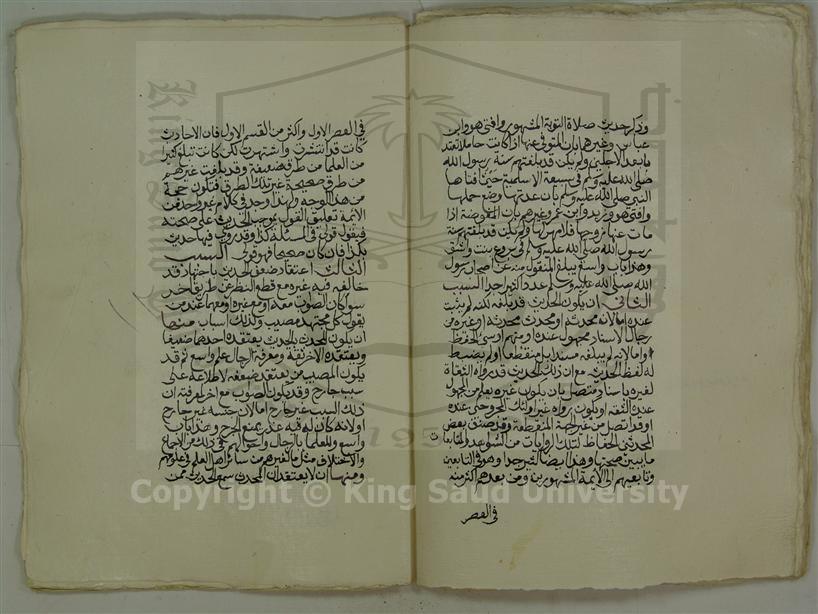 وذكر حديث صلاة التوبة المشهور وافتى هو وابن
عباس وغيرهما بان المتوفى عنها اذا كانت حاملا تعتد
بابعد الاجلين ولم يكن قد بلغتهم سنة رسول الله
صلى الله عليه وسلم في سبيعة الاسلمية حيث افتاها
النبي صلى الله عليه وسلم بان عدتها وضع حملها
وافتى هو وزيد وابن عمر وغيرهم بان المفوضة اذا
مات عنها زوجها فلا مهر لها ولم يكن قد بلغتهم سنة
رسول الله صلى الله عليه وسلم في بروع بنت واشق
وهذا باب واسع يبلغ المنقول منه عن اصحاب رسول
الله صلى الله عليه وسلم عددا كثيرا جدا السبب
الثاني ان يكون الحديث قد بلغه لكنه لم يثبت
عنده اما لانه محدثه او محدث محدثه او غيره من
رجال الاسناد مجهول عنده او متهم او سيئ الحفظ
واما لانه لم يبلغه مسندا بل منقطعا او لم يضبط
له لفظ الحديث مع ان ذلك الحديث قد رواه الثقاة
لغيره باسناد متصل بان يكون غيره يعلم من المجهول
عنده الثقة او يكون رواه غير اولئك المجروحين عنده
او قد اتصل من غير جهة المنقطعة وقد ضبط بعض
المحدثين الحفاظ لتلك الروايات من الشواهد والمتابعات
ما يبين صحتها وهذا ايضا كثير جدا وهو في التابعين
وتابعيهم الى الايمة المشهورين ومن بعدهم اكثر منه
في العصر
في العصر الاول واكثر من القسم الاول فان الاحاديث
كانت قد انتشرت واشتهرت لكن كانت تبلغ كثيرا
من العلما من طرق ضعيفة وقد بلغت غيرهم
من طرق صحيحة غير تلك الطرق فتكون حجة
من هذا الوجه ولهذا وجد في كلام غير واحد من
الائمة تعليق القول بموجب الحديث على صحته
فيقول قولي في المسئلة كذا وقد روي فيها حديث
بكذا فان كان صحيحا فهو قولي السبب
الثالث اعتقاد ضعف الحديث باجتهاد قد
خالفه فيه غيره مع قطع النظر عن طريق اخر
سوا كان الصواب معه او مع غيره او معهما عند من
يقول كل مجتهد مصيب ولذلك اسباب منها
ان يكون المحدث بالحديث يعتقده احدهما ضعيفا
ويعتقده الاخر ثقة ومعرفة الرجال علم واسع ثم قد
يكون المصيب من يعتقد ضعفه لاطلاعه على
سبب جارح وقد يكون الصواب مع اخر لمعرفته ان
ذلك السبب غير جارح اما لان جنسه غير جارح
او لانه كان له فيه عذر يمنع الجرح وهذا باب
واسع وللعلما بالرجال واحوالهم في ذلك من الاجماع
والاختلاف مثل ما لغيرهم من سائر اهل العلم في علومهم
ومنها ان لا يعتقد ان المحدث سمع الحديث ممن
Copyright © King Saud University